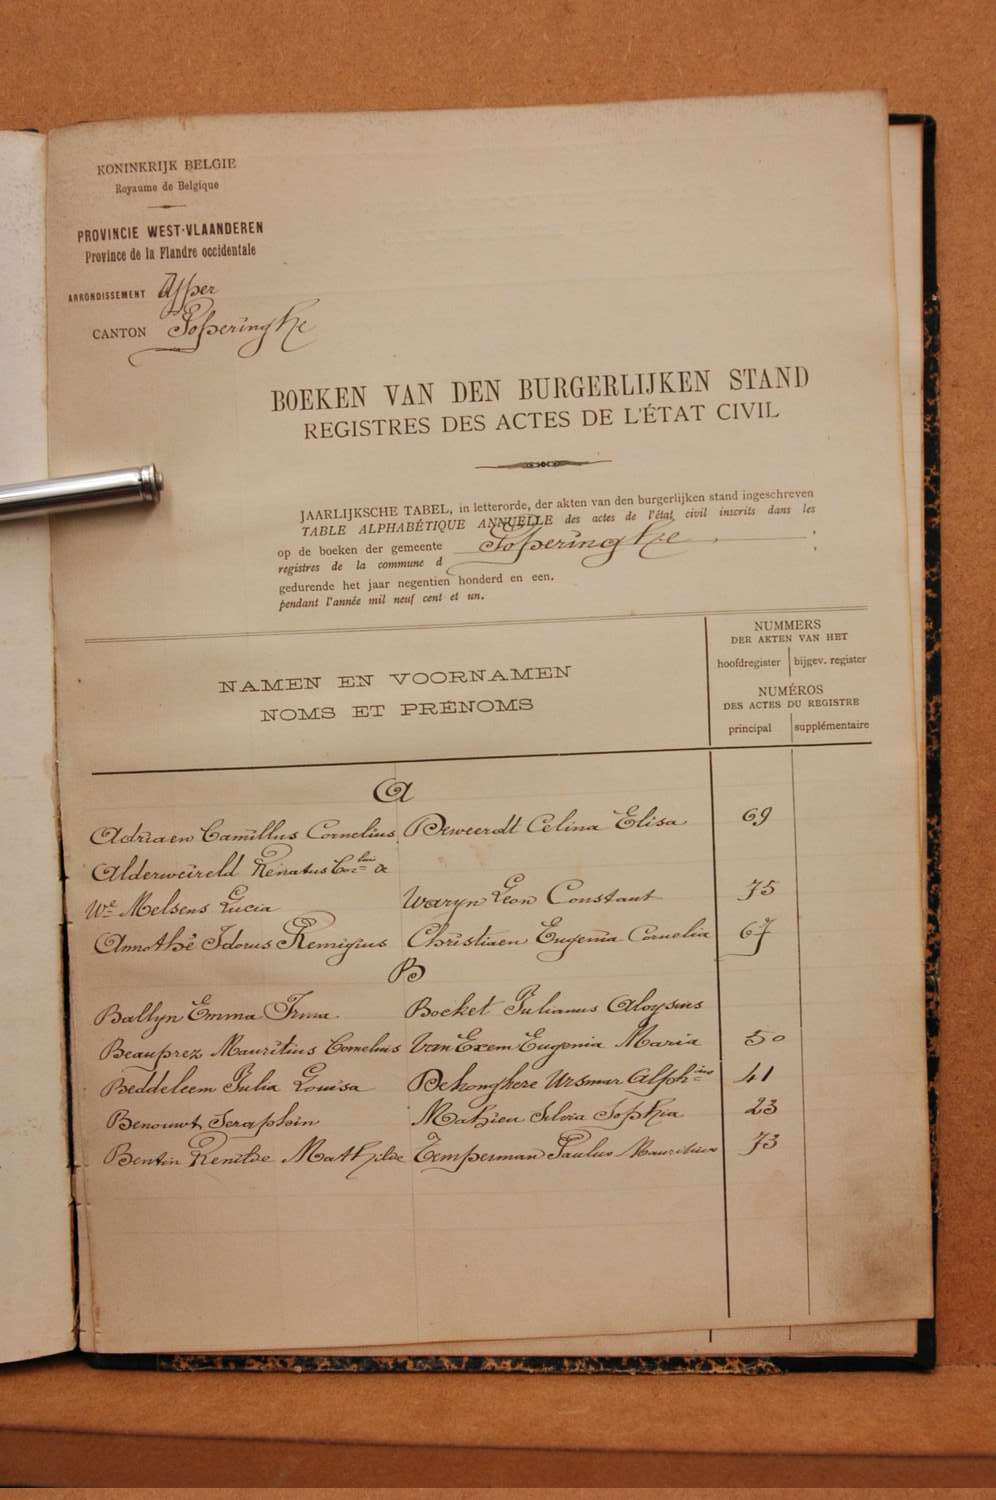 KONINKRIJK BELGIE
Royaume de Belgique
PROVINCIE WEST-VLAANDEREN
Province de la Flandre occidentale
ARRONDISSEMENT Yper
CANTON Poperinghe
BOEKEN VAN DEN BURGERLIJKEN STAND
REGISTRES DES ACTES DE L'ÉTAT CIVIL
JAARLIJKSCHE TABEL, in letterorde, der akten van den burgerlijken stand ingeschreven
TABLE ALPHABÉTIQUE ANNUELLE des actes de l'état civil inscrits dans les
op de boeken der gemeente Poperinghe
registres de la commune d
gedurende het jaar negentien honderd en een.
pendant l'année mil neuf cent et un.
NAMEN EN VOORNAMEN
NOMS ET PRÉNOMS
NUMMERS
DER AKTEN VAN HET
hoofdregister bijgev. register
NUMÉROS
DES ACTES DU REGISTRE
principal supplémentaire
A
Adriaen Camillus Cornelius Deweerdt Celina Elisa 69
Alderweireld Renatus
We Melsens Lucia Waryn Leon Constant 75
Annothé Idorus Remigius Christiaen Eugenia Cornelia 67
B
Ballyn Emma Irma Bocket Julianus Aloysius
Beauprez Mauritius Cornelius Van Exem Eugenia Maria 50
Beddeleem Julia Louisa Dekonghere Ursmar 41
Benouwt Seraphin Mahieu Silvia Sophia 23
Bentin Renilde Mathilde Temperman Paulus Mauritius 73